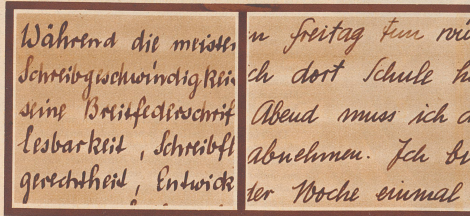 Während die meisten
Schreibgeschwindigkei
seine Breitfederschrif
lesbarkeit, Schreibfl
gerechtheit, Entwick
n Freitag tun
ch dort Schule h
Abend muss ich a
abnehmen. Ich b
der Woche einmal